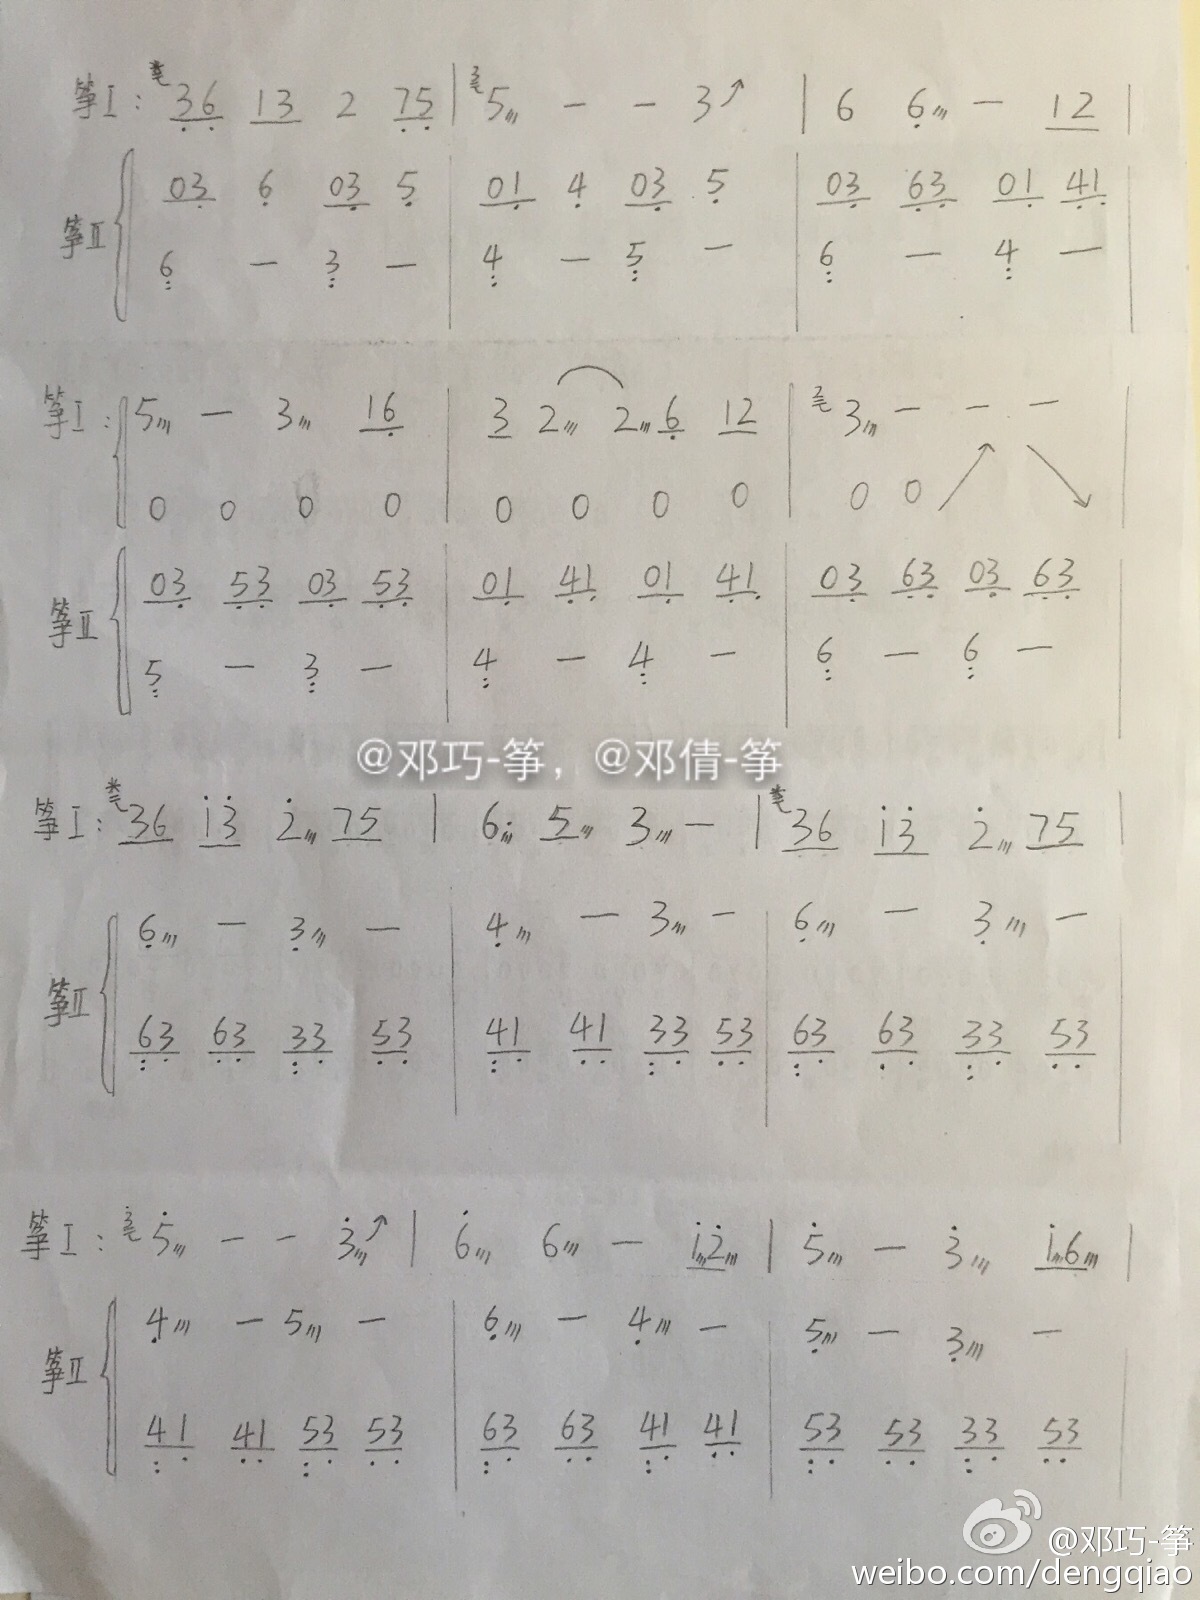 筝Ⅰ: 36 13 2 75 | 5 - - 3 | 6 6 - 12 |
筝Ⅱ 03 6 03 5 | 01 4 03 5 | 03 63 01 41
6 - 3 - | 4 - 5 - | 6 - 4 -
筝Ⅰ: 5 - 3 16 | 3 2 2 6 12 | 3 - - -
0 0 0 0 | 0 0 0 0 | 0 0
筝Ⅱ 03 53 03 53 | 01 41 01 41 | 03 63 03 63
5 - 3 - | 4 - 4 - | 6 - 6 -
@邓巧-筝，@邓倩-筝
筝Ⅰ: 36 i3̇ 2̇ 75 | 6. 5 3 - | 36 i3̇ 2̇ 75 |
筝Ⅱ 6 - 3 - | 4 - 3 - | 6 - 3 -
63 63 33 53 | 41 41 33 53 | 63 63 33 53
筝Ⅰ: 5̇ - - 3̇ | 6̇ 6 - i2̇ | 5̇ - 3̇ i6 |
筝Ⅱ 4 - 5 - | 6 - 4 - | 5 - 3 -
41 41 53 53 | 63 63 41 41 | 53 53 33 53
@邓巧-筝
weibo.com/dengqiao